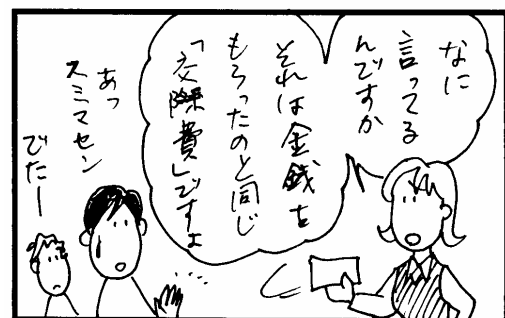 なに
言ってる
んですか
それは金銭を
もらったのと同じ
「交際費」ですよ
あっ
スミマセン
でたー